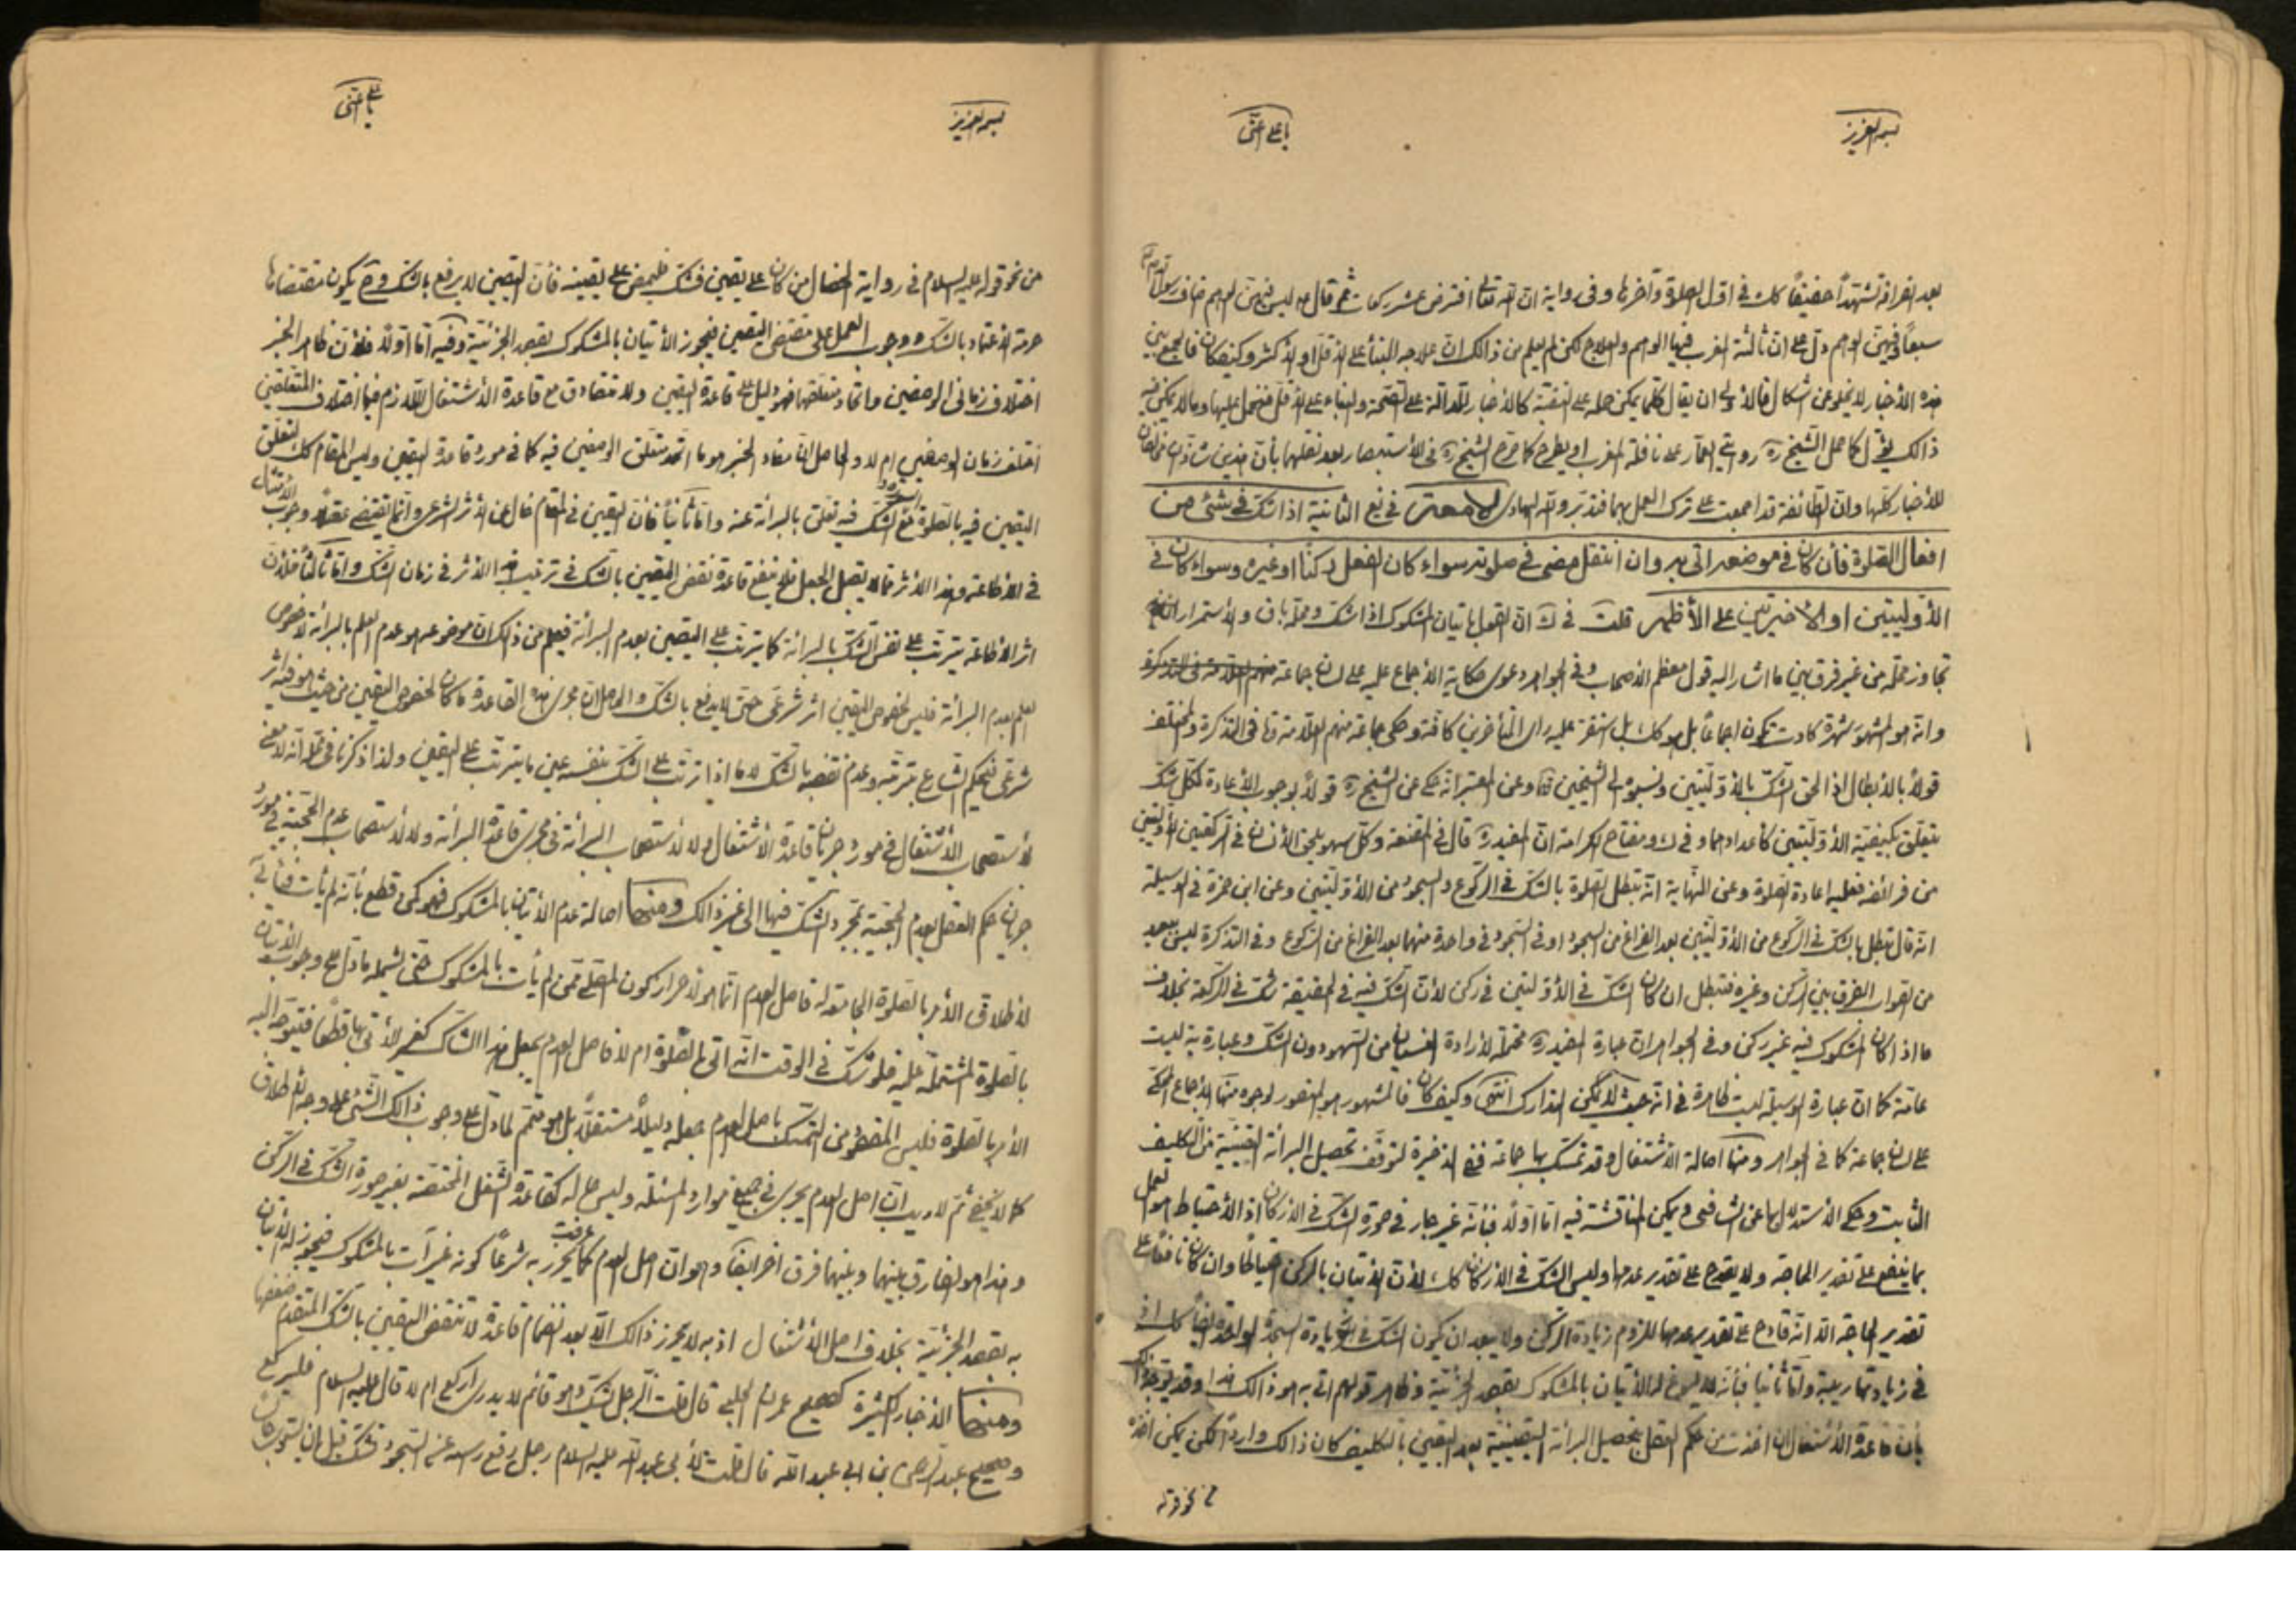 بسمه العزيز
يا علي اغثني
بعد انفرافه تشهداً خفيفاً كك في اول الصلوة وآخرها وفي رواية ان الله تعالى افترض عشر ركعات ثم قال ليس فيهن لهم فاضاف رسول الله
سبعاً وفيهن الوهم دل على ان ثالثة المغرب فيها الوهم والعلاج لكن لم يعلم من ذالك ان علاجه البناء على الاقل او الاكثر وكيف كان فالجمع بين
هذه الأخبار لا يخلو عن اشكال فالأولى ان يقال كلما يمكن حمله على التقية كالأخبار الدالة على الصحة والبناء على الأقل فيحمل عليها وما لا يمكن فيه
ذالك يؤل كما حمل الشيخ ره روايتي العمار على نافلة المغرب او يطرح كما صرح الشيخ ره في الاستبصار بعد نقلهما بأن هذين شاذان مخالفان
للأخبار كلها وان الطائفة قد اجمعت على ترك العمل بهما فتدبر والله الهادي الامعتر في يع الثانية اذا شك في شئ من
افعال الصلوة فأن كان في موضعه اتى به وان انتقل مضى في صلوته سواء كان الفعل ركناً او غيره وسواء كان في
الأوليتين او الاخيرتين على الأظهر قلت في ك ان القول باتيان المشكوك اذا شك ومحله باق والاستمرار ان
تجاوز محله من غير فرق بين ما اشار اليه قول معظم الأصحاب وفي الجواهر دعوى حكاية الأجماع عليه على لسان جماعة
وانه هو المشهور شهرة كادت تكون اجماعاً بل هو كك بل استقر عليه راى المتأخرين كافة وحكى جماعة منهم العلامة وفا في التذكرة والمختلف
قولاً بالأبطال اذا الحق الشك بالأوليتين ونسبوه الى الشيخين وعن المعتبر انه حكى عن الشيخ ره قولاً بوجوب الأعادة لكل شك
يتعلق بكيفية الأوليتين كأعدادهما وفي ك ومفتاح الكرامة ان المفيد ره قال في المقنعة وكل سهو يلحق الأنسان في الركعتين الأوليتين
من فرائضه فعليه اعادة الصلوة وعن النهاية انه تبطل الصلوة بالشك في الركوع والسجود من الأوليتين وعن ابن حمزة في الوسيلة
انه قال تبطل بالشك في الركوع من الأوليتين بعد الفراغ من السجود او في السجود في واحدة منهما بعد الفراغ من الركوع وفي التذكرة ليس ببعيد
من الصواب الفرق بين الركن وغيره فتبطل ان كان الشك في الأوليتين في ركن لأن الشك فيه في الحقيقة شك في الركعة بخلاف
ما اذا كان المشكوك فيه غير ركن وفي الجواهر ان عبارة المفيد ره محتملة لأرادة النسيان من السهو دون الشك وعبارة يه ليست
عامة كما ان عبارة الوسيلة ليست ظاهرة في انه حيث لا يمكن التدارك انتهى وكيف كان فالمشهور هو المنصور لوجوه منها الأجماع المحكى
على لسان جماعة كما في الجواهر ومنها اصالة الأشتغال وقد تمسك بها جماعة ففي الذخيرة لتوقف تحصيل البرائة اليقينية من التكليف
الثابت وحكى الأستدلال بها عن الشافعى ويمكن المناقشة فيه اما اولاً فبأنه غير جار في صورة الشك في الاركان اذ الأحتياط هو العمل
بما ينفع على تقدير الحاجة ولا يقدح على تقدير عدمها وليس الشك في الأركان كك لأن الأتيان بالركن احتياطاً وان كان نافعاً على
تقدير الحاجة الا انه قادح على تقدير عدمها للزوم زيادة الركن ولا يبعد ان يكون الشك في زيادة السجدة الواحدة ايضاً كك اذ
في زيادتها ريبة واما ثانيا فبأنه لا يسوغ له الأتيان بالمشكوك بقصد الجزئية وظاهر قولهم اتى به هو ذالك هذا وقد يوجه ذالك
بأن قاعدة الأشتغال ان اخذت من حكم العقل بتحصيل البرائة اليقينية بعد اليقين بالتكليف كان ذالك وارداً لكن يمكن اخذه
من نحو قوله
بسمه العزيز
يا علي اغثني
من نحو قوله عليه السلام في رواية الخصال من كان على يقين فشك فليمض على يقينه فأن اليقين لا يدفع بالشك وح يكون مقتضاها
حرمة الأعتداد بالشك ووجوب العمل على مقتضى اليقين فيجوز الأتيان بالمشكوك بقصد الجزئية وفيه اما اولاً فلأن ظاهر الخبر
اختلاف زماني الوصفين واتحاد متعلقهما فهو دليل على قاعدة اليقين ولا تصادق مع قاعدة الأشتغال اللازم فيها اختلاف المتعلقين
اختلف زمان الوصفين ام لا والحاصل ان مفاد الخبر هو ما اتحد متعلق الوصفين فيه كما في مورد قاعدة اليقين وليس المقام كك لتعلق
اليقين فيه بالصلوة مع الشك فيه تعلق بالبرائة عنه واما ثانياً فلأن اليقين في المقام خال عن الأثر الشرعى وانما يقتضى عقلاً وجوب الأمتثال
في الأطاعة وهذا الأثر مما لا يقبل الجعل فلا ينفع قاعدة نقض اليقين بالشك في ترتيب هذا الأثر في زمان الشك واما ثالثاً فلأن
اثر الأطاعة يترتب على نفس الشك بالبرائة كما يترتب على اليقين بعدم البرائة فيعلم من ذالك ان موضوعه هو عدم العلم بالبرائة لا خصوص
العلم بعدم البرائة فليس لخصوص اليقين اثر شرعى حتى لا يدفع بالشك والحاصل ان مجرى هذه القاعدة ما كان لخصوص اليقين من حيث هو فيه اثر
شرعى فيحكم الشارع بترتبه وعدم نقضه بالشك لا ما اذا ترتب على الشك بنفسه عين ما يترتب على اليقين ولذا ذكرنا في محله انه لا معنى
لأستصحاب الأشتغال في مورد جريان قاعدة الأشتغال ولا لأستصحاب البرائة في مجرى قاعدة البرائة ولا لأستصحاب عدم الحجية في مورد
جريان حكم العقل بعدم الحجية بمجرد الشك فيها الى غير ذالك ومنها اصالة عدم الأتيان بالمشكوك فهو كمن قطع بأنه لم يأت فيأتي
لأطلاق الأمر بالصلوة الجامعة له فاصل العدم انما هو لأحراز كون المصلى ممن لم يأت بالمشكوك حتى يشمله ما دل على وجوب الأتيان
بالصلوة المشتملة عليه فلو شك في الوقت انه اتى بالصلوة ام لا فاصل العدم يجعل هذا الشاك كغير الأتي بها قطعاً فيتوجه اليه
الأمر بالصلوة فليس المقصود من التمسك باصل العدم جعله دليلاً مستقلاً بل هو متمم لما دل على وجوب ذالك الشئ على وجه الأطلاق
كما لا يخفى ثم لا ريب ان اصل العدم يجرى في جميع موارد المسئلة وليس حاله كقاعدة الشغل المختصة بغير صورة الشك في الركن
وهذا هو الفارق بينهما وبينهما فرق اخر ايضاً وهو ان اصل العدم كما عرفت يحرز به شرعاً كونه غير آت بالمشكوك فيجوز له الأتيان
به بقصد الجزئية بخلاف اصل الأشتغال اذ به لا يحرز ذالك الا بعد انضمام قاعدة لا تنقض اليقين بالشك المتقدم ضعفها
ومنها الأخبار الكثيرة كصحيح عمران الحلبي قال قلت الرجل يشك وهو قائم لا يدرى اركع ام لا قال عليه السلام فليركع
وصحيح عبد الرحمن بن ابي عبد الله قال قلت لأبي عبد الله عليه السلام رجل رفع رأسه عن السجود فشك قبل ان يستوى